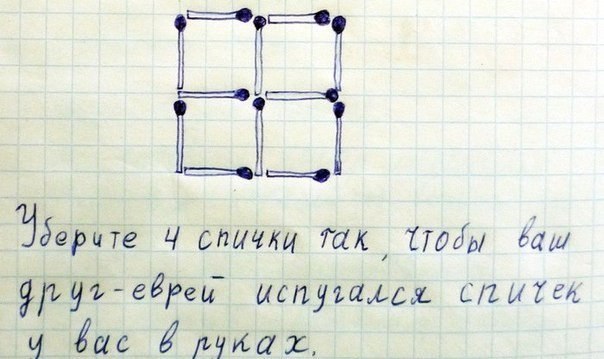 Уберите 4 спички так, чтобы ваш
друг-еврей испугался спичек
у вас в руках.